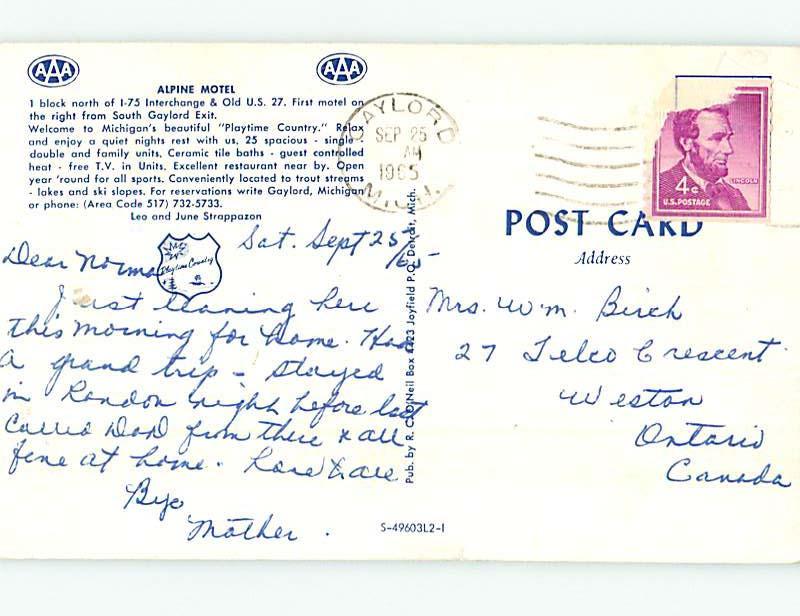 AAA
AAA
ALPINE MOTEL
1 block north of I-75 Interchange & Old U.S. 27. First motel on
the right from South Gaylord Exit.
Welcome to Michigan's beautiful "Playtime Country." Relax
and enjoy a quiet nights rest with us, 25 spacious - single -
double and family units. Ceramic tile baths - guest controlled
heat - free T.V. in Units. Excellent restaurant near by. Open
year 'round for all sports. Conveniently located to trout streams
- lakes and ski slopes. For reservations write Gaylord, Michigan
or phone: (Area Code 517) 732-5733.
Leo and June Strappazon
GAYLORD
SEP 25
AM
1965
MICH.
4¢
LINCOLN
U.S. POSTAGE
POST CARD
Address
Playtime Country
Sat. Sept 25/65-
Dear Norma
Just leaving here
this morning for home. Had
a grand trip - stayed
in London night before last
Called Dad from there & all
fine at home. Love & all
Bye
Mother.
Pub. by R. C. O'Neil Box 4423 Joyfield P.O. Detroit, Mich.
S-49603L2-1
Mrs. Wm. Birch
27 Telco Crescent
Weston
Ontario
Canada